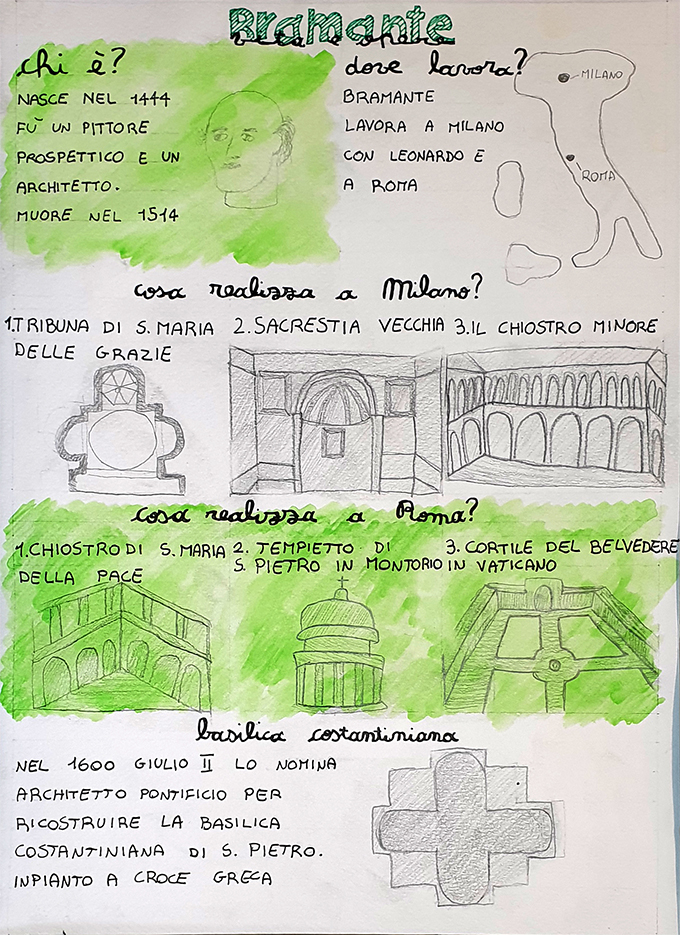 Bramante
vita e opere
chi è?
NASCE NEL 1444
FÙ UN PITTORE
PROSPETTICO E UN
ARCHITETTO.
MUORE NEL 1514
dove lavora?
BRAMANTE
LAVORA A MILANO
CON LEONARDO E
A ROMA
MILANO
ROMA
cosa realizza a Milano?
1.TRIBUNA DI S. MARIA
DELLE GRAZIE
2. SACRESTIA VECCHIA
3. IL CHIOSTRO MINORE
cosa realizza a Roma?
1. CHIOSTRO DI S. MARIA
DELLA PACE
2. TEMPIETTO DI
S. PIETRO IN MONTORIO
3. CORTILE DEL BELVEDERE
IN VATICANO
basilica costantiniana
NEL 1600 GIULIO II LO NOMINA
ARCHITETTO PONTIFICIO PER
RICOSTRUIRE LA BASILICA
COSTANTINIANA DI S. PIETRO.
INPIANTO A CROCE GRECA